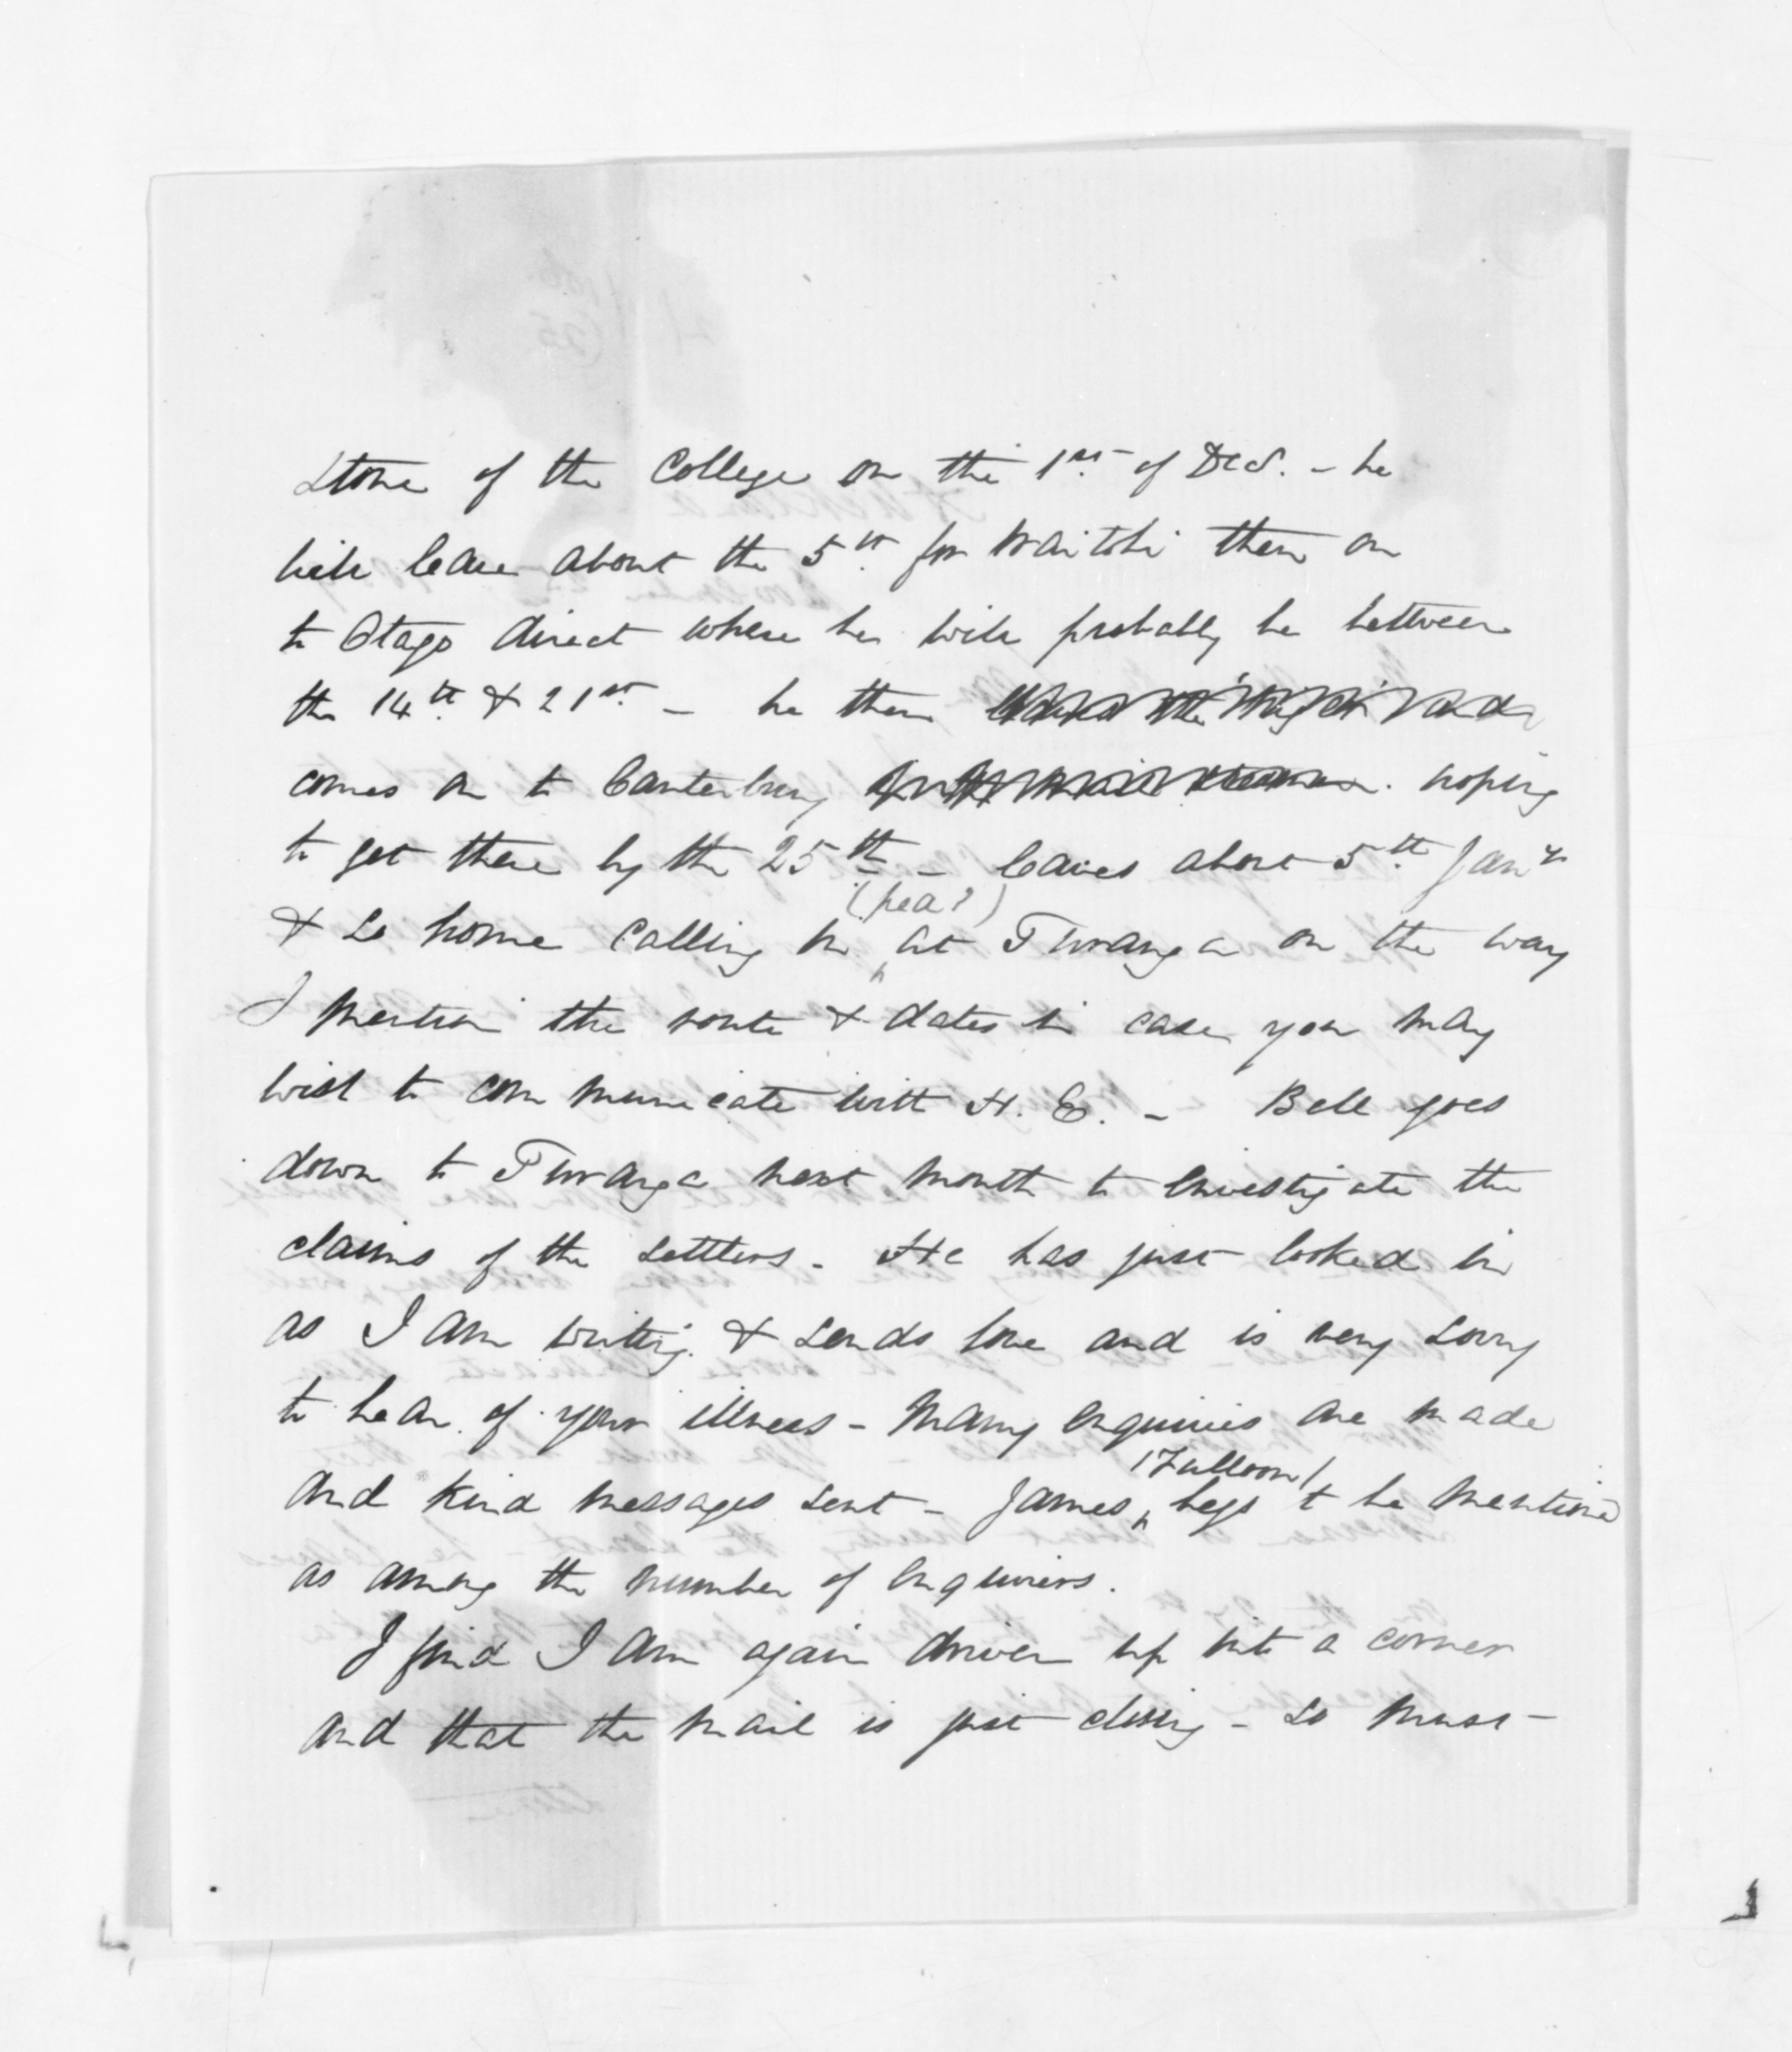 stone of the College on the 1st. of Dec. - he
will leave about the 5th. for Waitohi then on
to Otago direct where he will probably be between
the 14th. & 21st. - he then
comes on to Canterbury hoping
to get there by the 25th. - leaves about 5th. Jany
(pea?)
& so home calling in at Turanga on the way
I mention the route & dates in case you may
wish to communicate with H. E. - Bell goes
down to Turanga next month to investigate the
claims of the settlers. He has just looked in
as I am writing & sends love and is very sorry
to hear of your illness - Many enquiries are made
(Fulloon)
and kind messages sent - James begs to be mentioned
as among the number of enquirers.
I find I am again driven up into a corner
and that the mail is just closing - so must